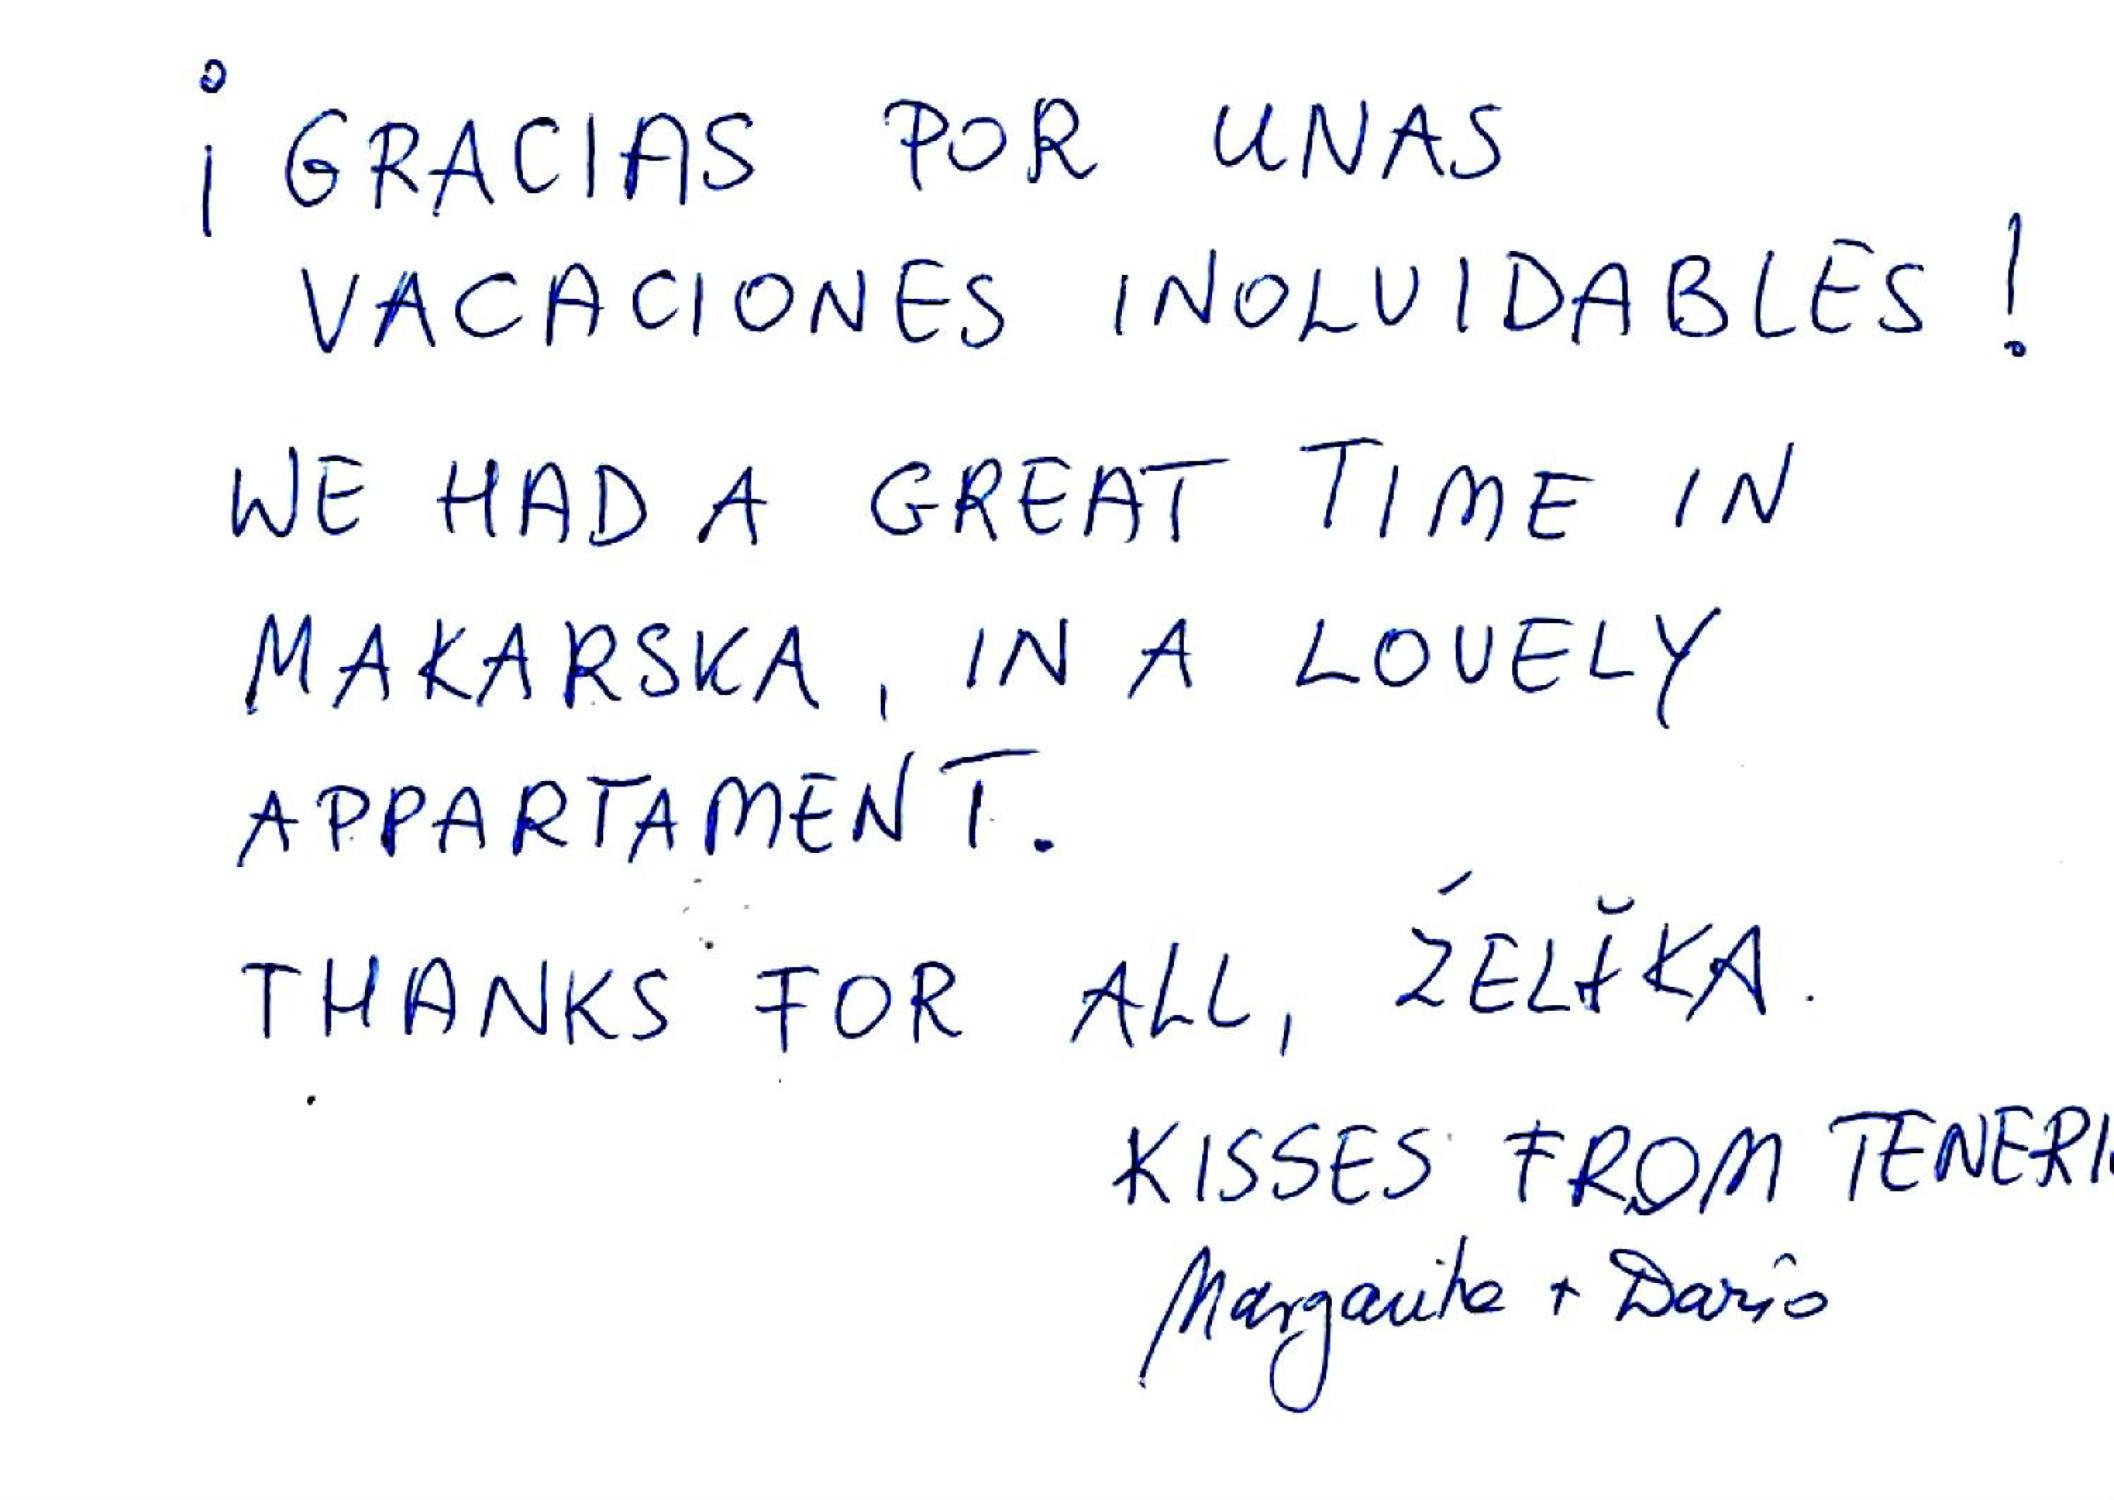 ¡GRACIAS POR UNAS
VACACIONES INOLVIDABLES!
WE HAD A GREAT TIME IN
MAKARSKA, IN A LOVELY
APPARTAMENT.
THANKS FOR ALL,
KISSES FROM
Margarita + Darío